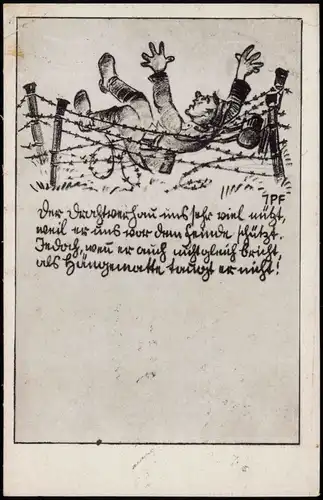 JPF
Der Drahtverhau uns sehr viel nützt,
weil er uns vor dem Feinde schützt.
Jedoch, wen er auch nicht gleich bricht,
als Hängematte taugt er nicht!